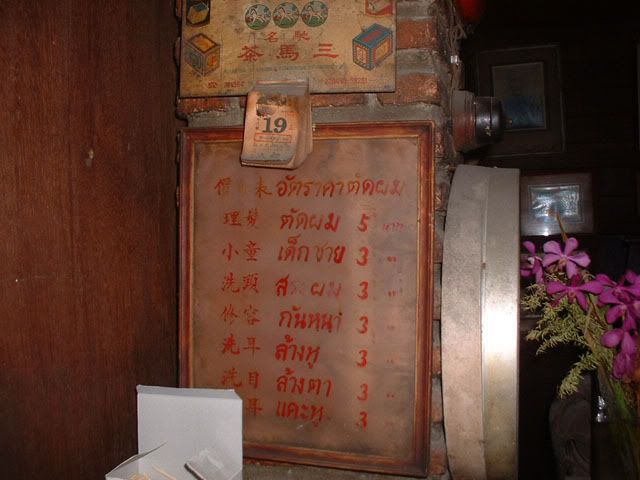 名馳
茶馬三
19
價目表 อัตราคาตัดผม
理髮 ตัดผม 5 บาท
小童 เด็กชาย 3 〃
洗頭 สระผม 3 〃
修容 กันหน้า 3 〃
洗耳 ล้างหู 3 〃
洗目 ล้างตา 3 〃
耳 แคะหู 3 〃